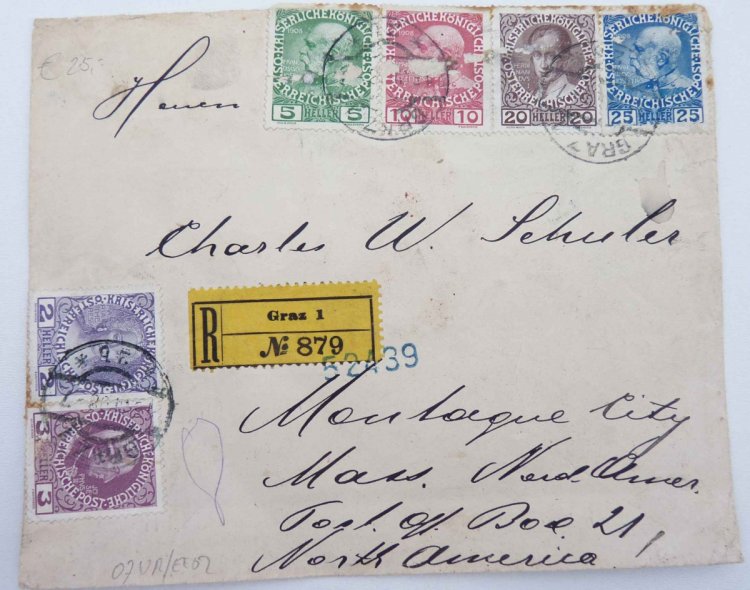 € 25.-
KAISERLICHE KÖNIGLICHE ÖSTERREICHISCHE POST
1908
5 HELLER 5
KAISERLICHE KÖNIGLICHE ÖSTERREICHISCHE POST
10 HELLER 10
KAISERLICHE KÖNIGLICHE ÖSTERREICHISCHE POST
20 HELLER 20
KAISERLICHE KÖNIGLICHE ÖSTERREICHISCHE POST
1908
25 HELLER 25
GRAZ
Herrn
Charles W. Schuler
2 HELLER 2
3 HELLER 3
R
Graz 1
№ 879
52439
Montague City
Mass. Nord. Amer.
Post. off Box 21,
North America